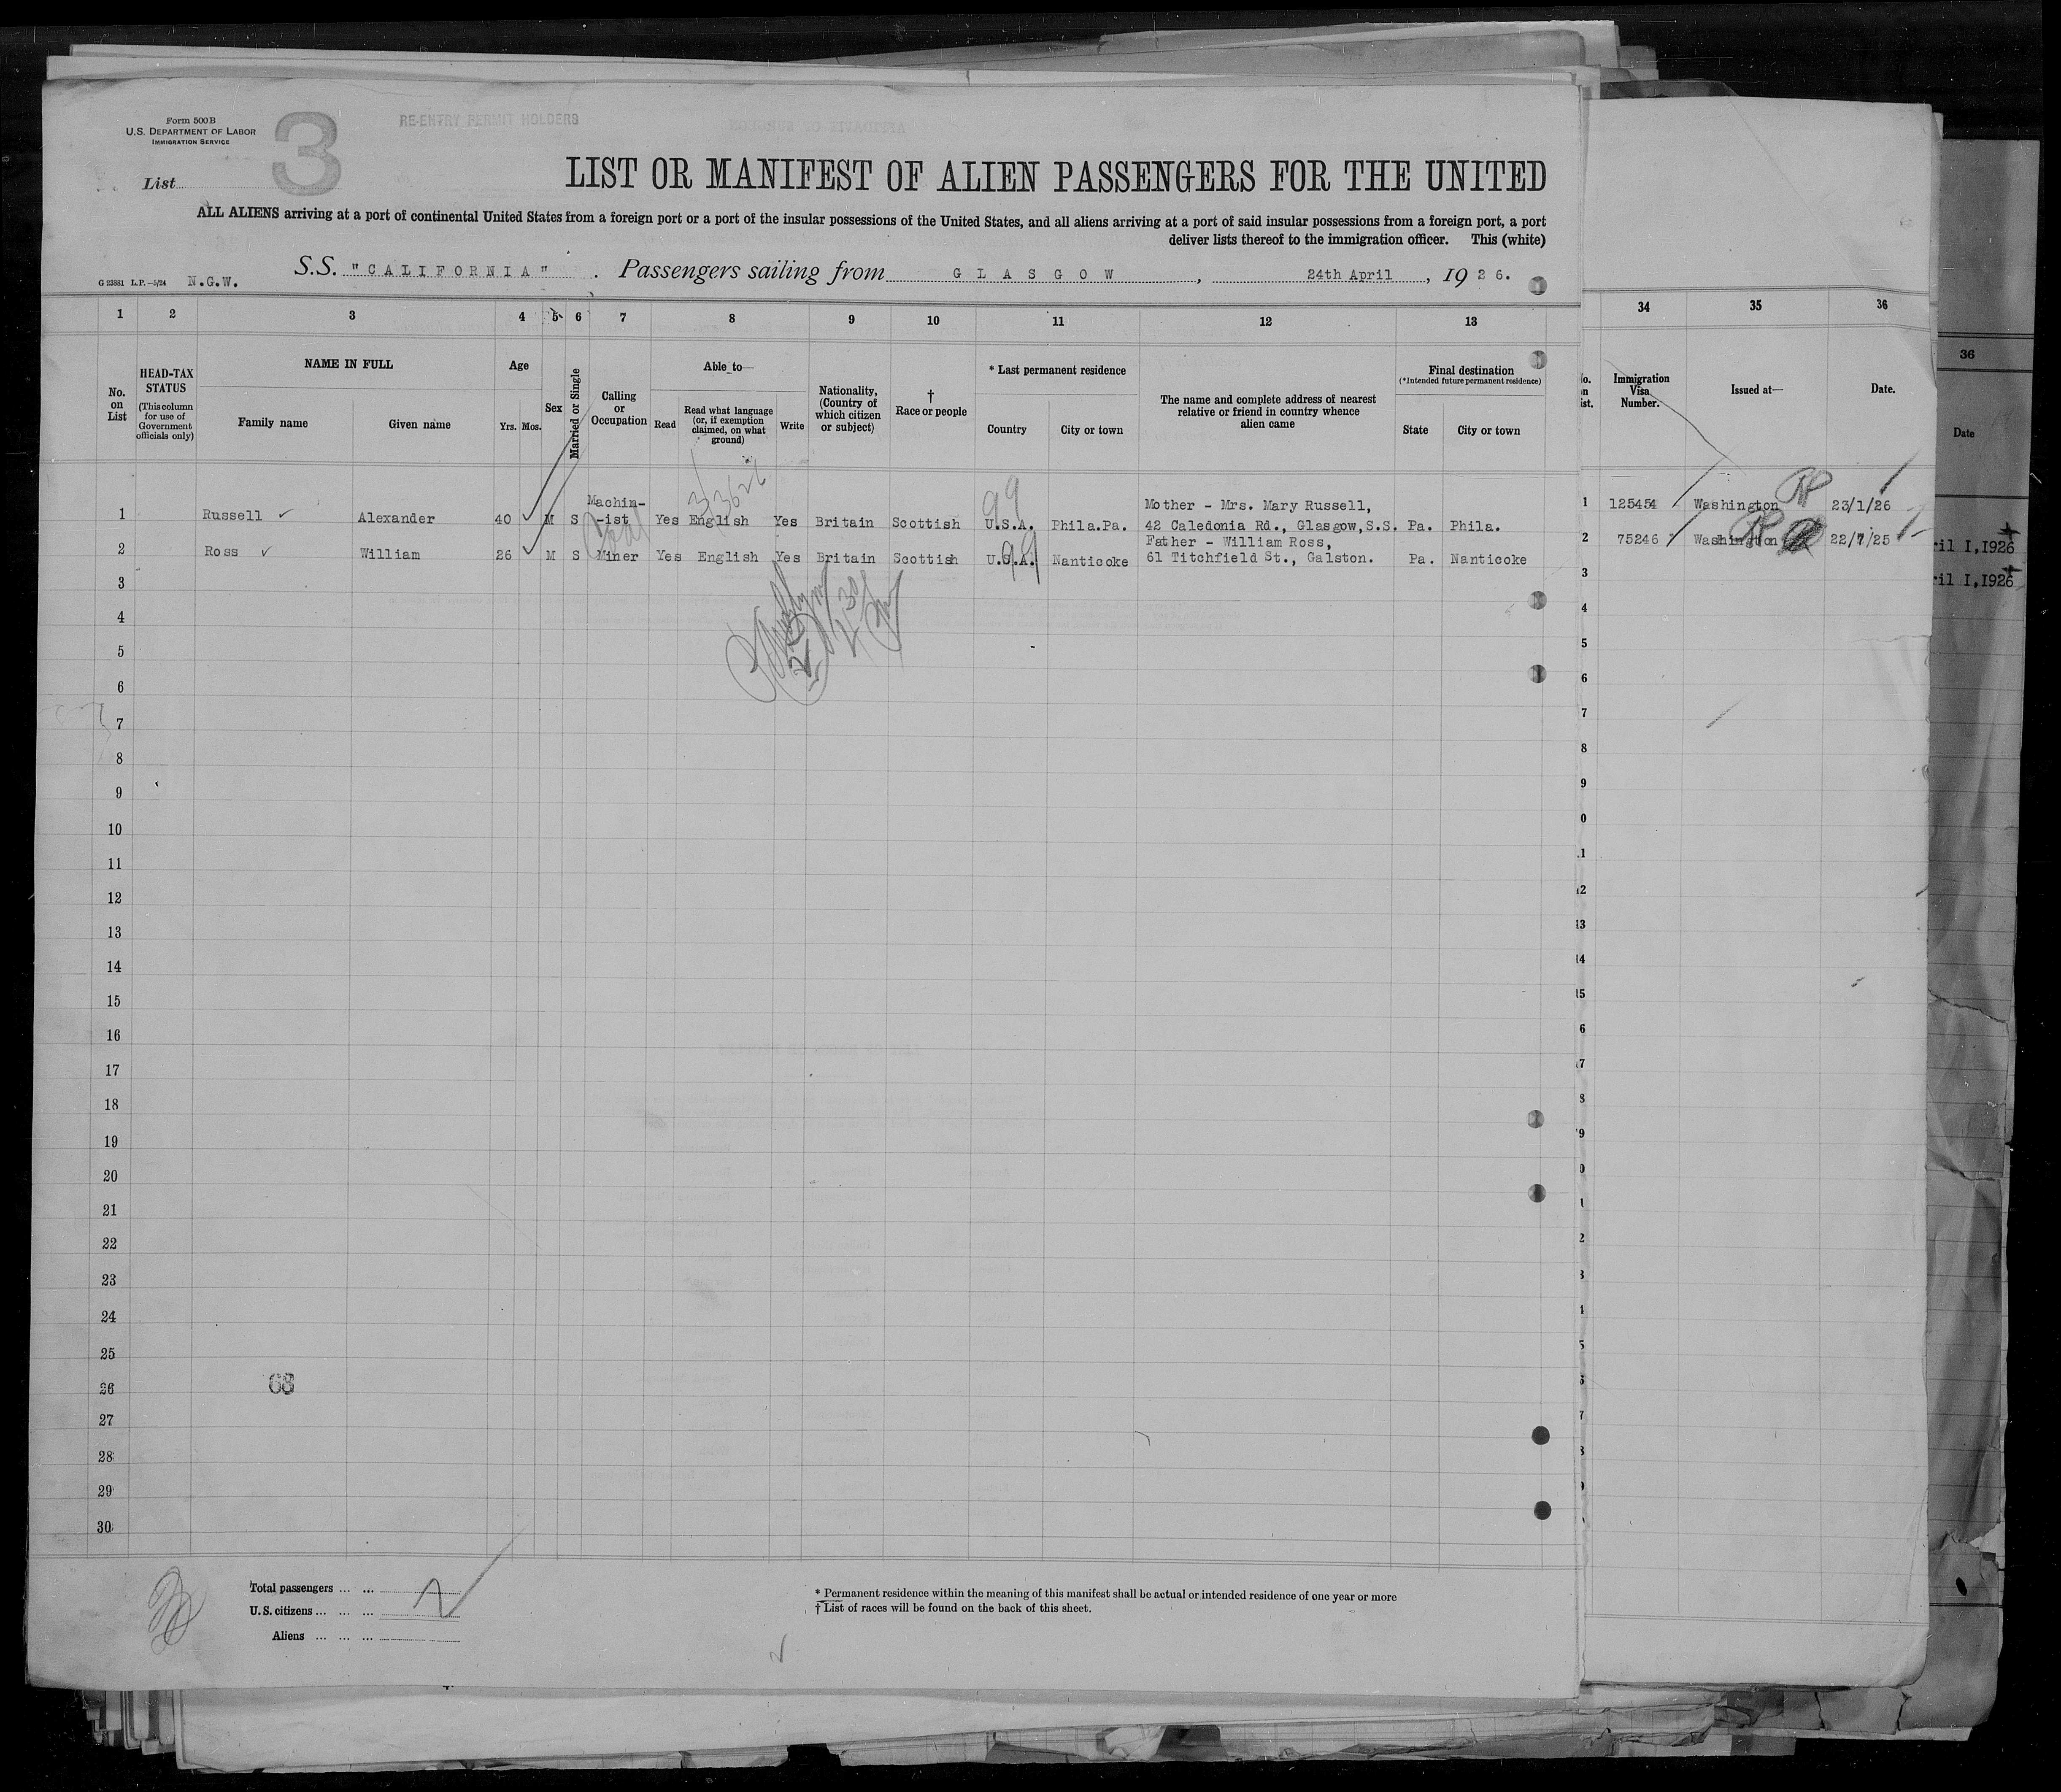 Form 500 B
U.S. DEPARTMENT OF LABOR
IMMIGRATION SERVICE
3
RE-ENTRY PERMIT HOLDERS
List
LIST OR MANIFEST OF ALIEN PASSENGERS FOR THE UNITED
ALL ALIENS arriving at a port of continental United States from a foreign port or a port of the insular possessions of the United States, and all aliens arriving at a port of said insular possessions from a foreign port, a port
deliver lists thereof to the immigration officer. This (white)
S.S. "CALIFORNIA". Passengers sailing from GLASGOW, 24th April, 1926.
G 23881 L.P.—5/24 N.G.W.
1 2 3 4 5 6 7 8 9 10 11 12 13 34 35 36
No. on List
HEAD-TAX STATUS
(This column for use of Government officials only)
NAME IN FULL
Family name Given name
Age
Yrs. Mos.
Sex
Married or Single
Calling or Occupation
Able to—
Read
Read what language (or, if exemption claimed, on what ground)
Write
Nationality, (Country of which citizen or subject)
† Race or people
* Last permanent residence
Country City or town
The name and complete address of nearest relative or friend in country whence alien came
Final destination
(*Intended future permanent residence)
State City or town
Immigration Visa Number.
Issued at—
Date.
36
Date
3/3626
99
1 Russell Alexander 40 M S Machin-
-ist Yes English Yes Britain Scottish U.S.A. Phila.Pa. Mother - Mrs. Mary Russell,
42 Caledonia Rd., Glasgow,S.S. Pa. Phila. 1 125454 Washington RP 23/1/26
2 Ross William 26 M S Coal Miner Yes English Yes Britain Scottish U.S.A. 99 Nanticoke Father - William Ross,
61 Titchfield St., Galston. Pa. Nanticoke 2 75246 Washington RP 22/7/25
ril I,1926
ril I,1926
3
4
5
6
7
8
9
10
11
12
13
14
15
16
17
18
19
20
21
22
23
24
25
26
27
28
29
30
68
Total passengers ... ... 2
U.S. citizens ... ... ...
Aliens ... ... ...
* Permanent residence within the meaning of this manifest shall be actual or intended residence of one year or more
† List of races will be found on the back of this sheet.